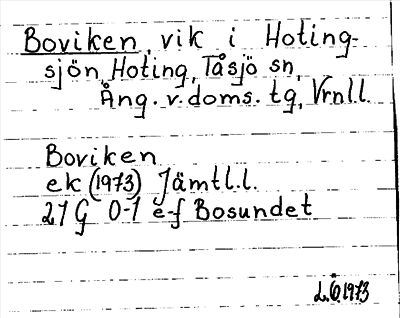 Boviken, vik i Hoting-
sjön, Hoting, Tåsjö sn,
Ång. v. doms. tg, Vrnl.l.
Boviken
ek (1973) Jämtl.l.
21 G 0-1 e-f Bosundet
L.Ö.1973